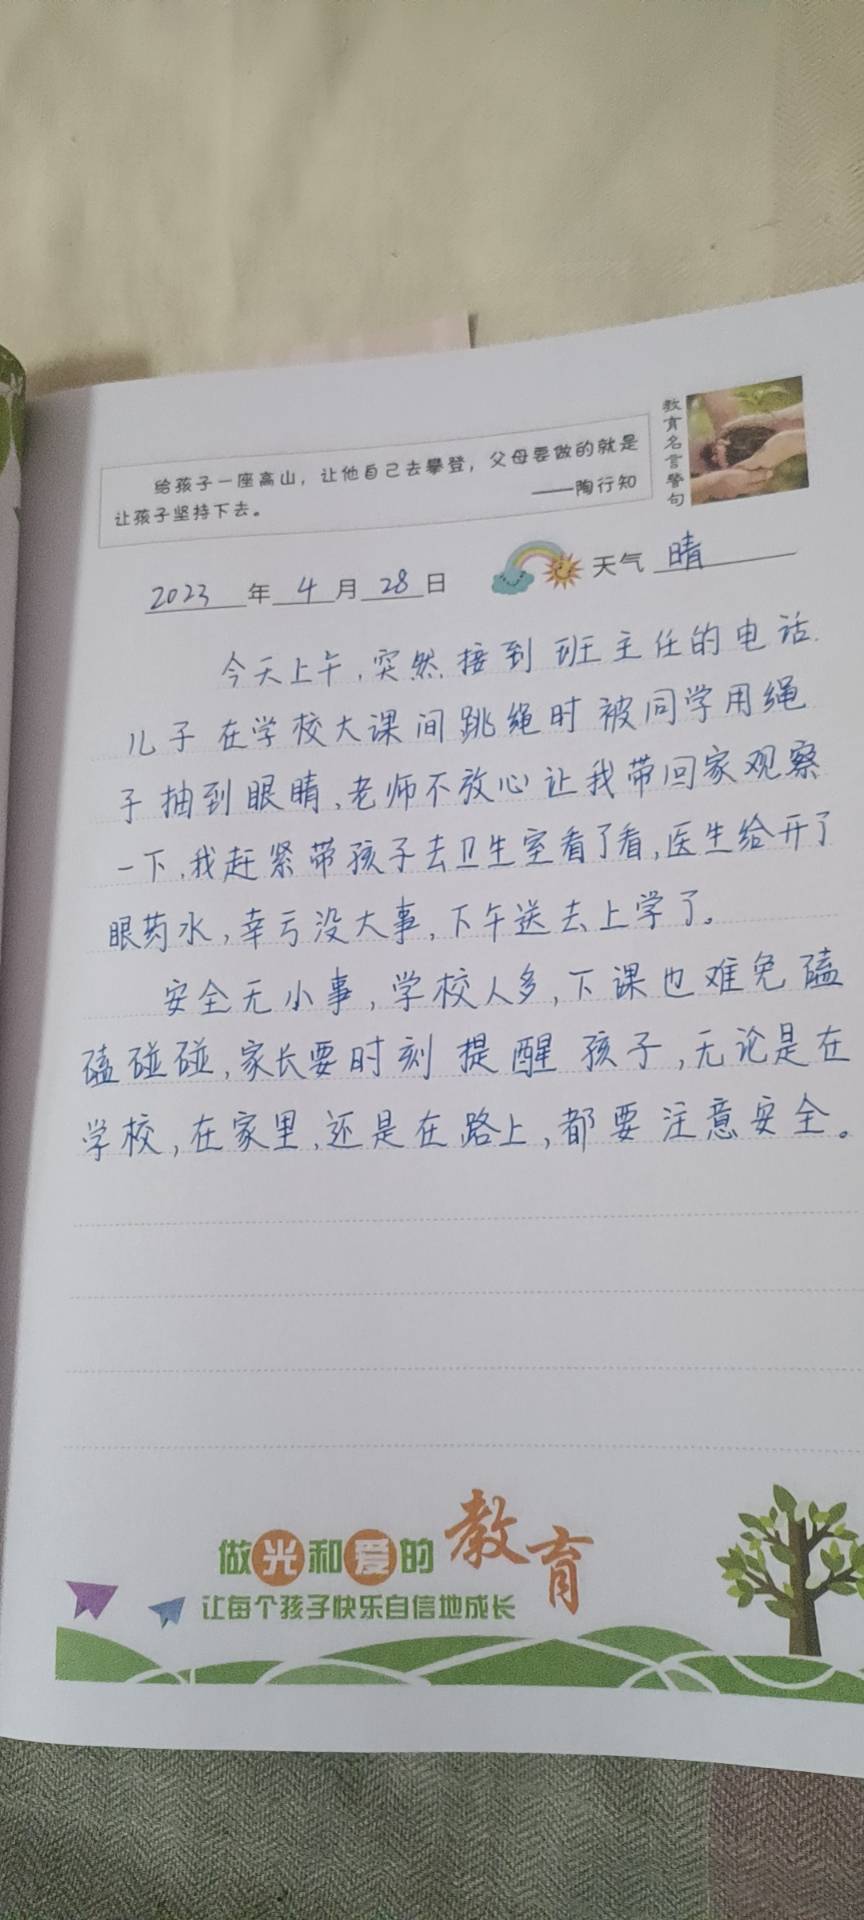 给孩子一座高山，让他自己去攀登，父母要做的就是
让孩子坚持下去。
——陶行知
教育名言警句
2023年4月28日 天气 晴
今天上午，突然接到班主任的电话.
儿子在学校大课间跳绳时被同学用绳
子抽到眼睛、老师不放心让我带回家观察
一下，我赶紧带孩子去卫生室看了看，医生给开了
眼药水，幸亏没大事，下午送去上学了。
安全无小事，学校人多，下课也难免磕
磕碰碰，家长要时刻提醒孩子，无论是在
学校，在家里，还是在路上，都要注意安全。
做光和爱的教育
让每个孩子快乐自信地成长